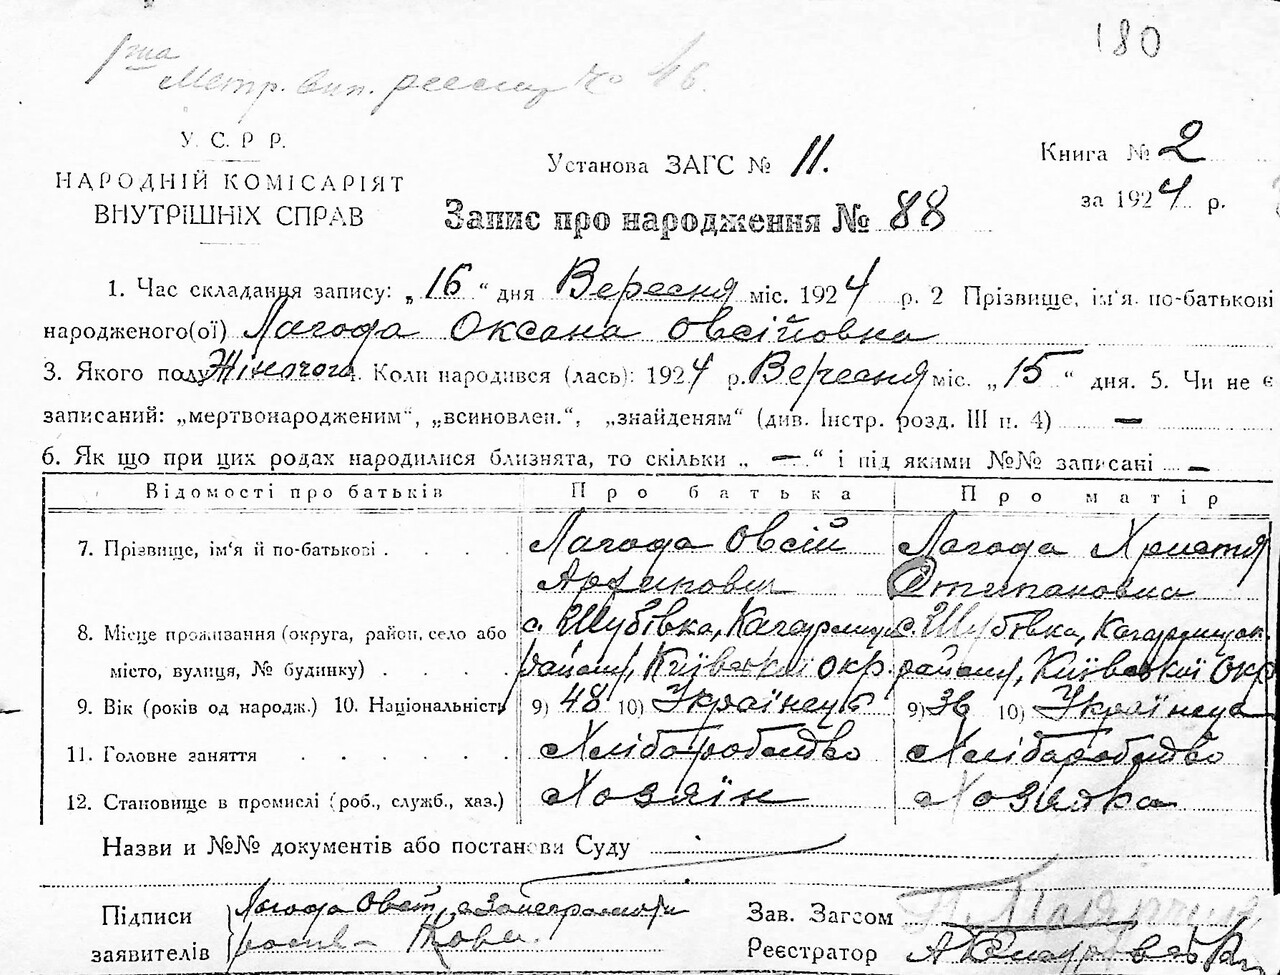 180
Метр. вип. № 46.
У. С. Р. Р.
НАРОДНІЙ КОМІСАРІЯТ
ВНУТРІШНІХ СПРАВ
Установа ЗАГС № 11.
Книга № 2
за 1924 р.
Запис про народження № 88
1. Час складання запису: „16 “ дня Вересня міс. 1924 р. 2 Прізвище, ім‘я по-батькові
народженого(ої) Лагода Оксана Овсійовна
3. Якого полу Жіночого. Коли народився (лась): 1924 р. Вересня міс. „15 “ дня. 5. Чи не є
записаний: „мертвонародженим“, „всиновлен.“, „знайденям“ (див. Інстр. розд. III п. 4) —
6. Як що при цих родах народилися близнята, то скільки „ — “ і під якими №№ записані —
Відомості про батьків Про батька Про матір
7. Прізвище, ім‘я й по-батькові . . . . Лагода Овсій Лагода Христя
Архипович Степановна
8. Місце проживання (округа, район, село або с. Шубівка, Кагарлицк с. Шубівка, Кагарлицк.
місто, вулиця, № будинку) . . . . району, Київської окр. району, Київської Окр
9. Вік (років од народж.) 10. Національність 9) 48 10) Українець 9) 36 10) Українка
11. Головне заняття . . . . . . Хліборобство Хліборобство
12. Становище в промислі (роб., служб., хаз.) Хозяїн Хозяйка
Назви и №№ документів або постанови Суду
Підписи Лагода Овсій, а
заявителів
Зав. Загсом
Реєстратор